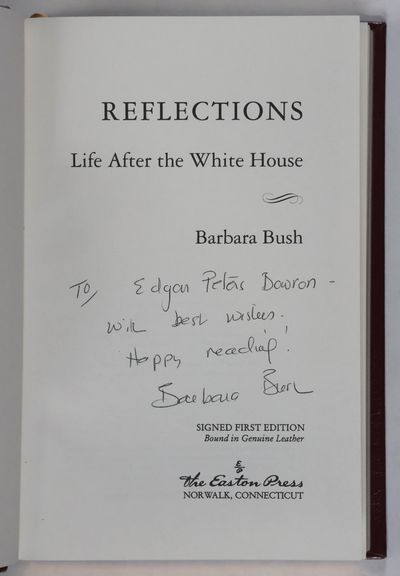 REFLECTIONS
Life After the White House
Barbara Bush
To/ Edgar Peters Bowron -
with best wishes.
Happy reading!
Barbara Bush
SIGNED FIRST EDITION
Bound in Genuine Leather
E/P
The Easton Press
NORWALK, CONNECTICUT